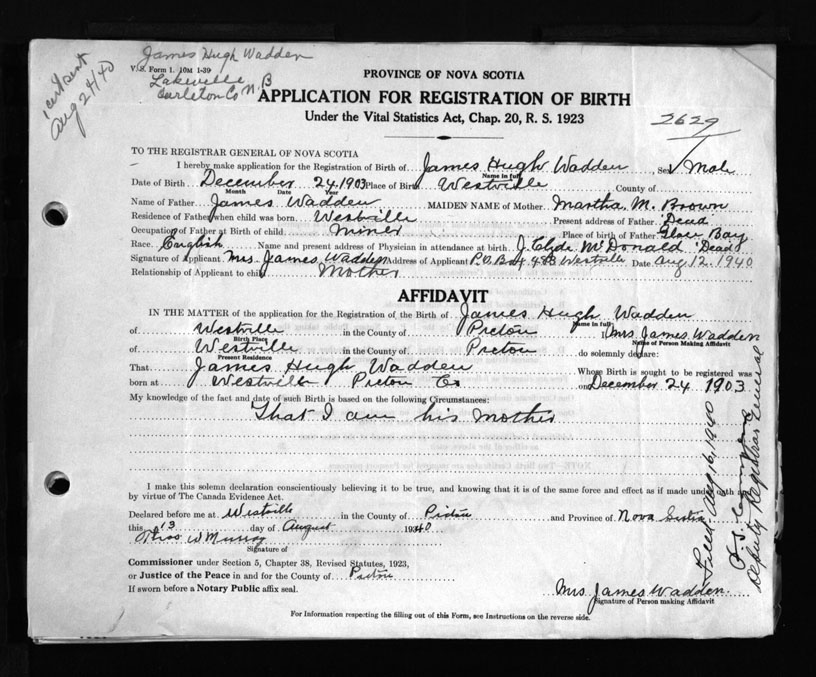 James Hugh Wadden
V.S. Form 1. 10M 1-39
Lakeville
Carleton Co N.B
'cert sent
Aug 24/40
PROVINCE OF NOVA SCOTIA
APPLICATION FOR REGISTRATION OF BIRTH
Under the Vital Statistics Act, Chap. 20, R. S. 1923
2629
TO THE REGISTRAR GENERAL OF NOVA SCOTIA
I hereby make application for the Registration of Birth of James Hugh Wadden Sex Male
Name in full
Date of Birth December 24. 1903 Place of Birth Westville County of
Month Date Year
Name of Father James Wadden MAIDEN NAME of Mother Martha. M. Brown
Residence of Father when child was born Westville Present address of Father Dead
Occupation of Father at Birth of child miner Place of birth of Father Glace Bay
Race English Name and present address of Physician in attendance at birth J. Clyde McDonald 'Dead'
Signature of Applicant Mrs. James Wadden Address of Applicant P.O. Box 483 Westville Date Aug 12. 1940
Relationship of Applicant to child Mother
AFFIDAVIT
IN THE MATTER of the application for the Registration of the Birth of James Hugh Wadden
Name in full
of Westville in the County of Pictou I Mrs James Wadden
Birth Place Name of Person Making Affidavit
of Westville in the County of Pictou do solemnly declare:
Present Residence
That James Hugh Wadden Whose Birth is sought to be registered was
born at Westville Pictou Co on December 24 1903
My knowledge of the fact and date of such Birth is based on the following Circumstances:
That I am his mother
I make this solemn declaration conscientiously believing it to be true, and knowing that it is of the same force and effect as if made under oath and
by virtue of The Canada Evidence Act.
Declared before me at Westville in the County of Pictou and Province of Nova Scotia
this 13 day of August 1940
Thos W Murray
Signature of
Commissioner under Section 5, Chapter 38, Revised Statutes, 1923,
or Justice of the Peace in and for the County of Pictou
If sworn before a Notary Public affix seal.
Mrs James Wadden.
Signature of Person making Affidavit
For Information respecting the filling out of this Form, see Instructions on the reverse side.
Filed Aug 16, 1940
Deputy Registrar General